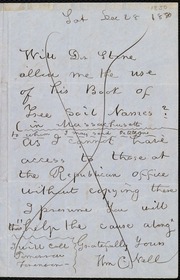 Sat Dec 28 1850
Will Dr Stone
allow me the use
of his Book of
Free Soil Names?
(in Massachusetts
to whom I may send
As I cannot have
access to those at
the Republican office
without copying them
I presume you will
"help the cause along"
I will call Gratefully Yours
Tomorrow
Wm C. Nell